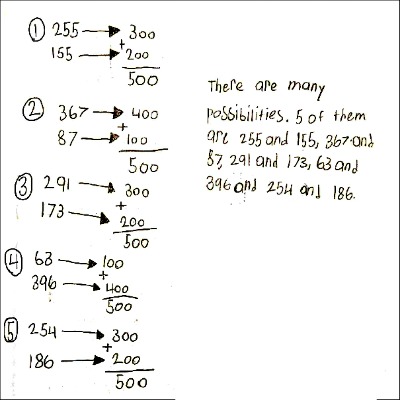 ① 255 → 300
155 → + 200
500
② 367 → 400
87 → + 100
500
③ 291 → 300
173 → + 200
500
④ 63 → 100
396 → + 400
500
⑤ 254 → 300
186 → + 200
500
There are many
possibilities. 5 of them
are 255 and 155, 367 and
87, 291 and 173, 63 and
396 and 254 and 186.